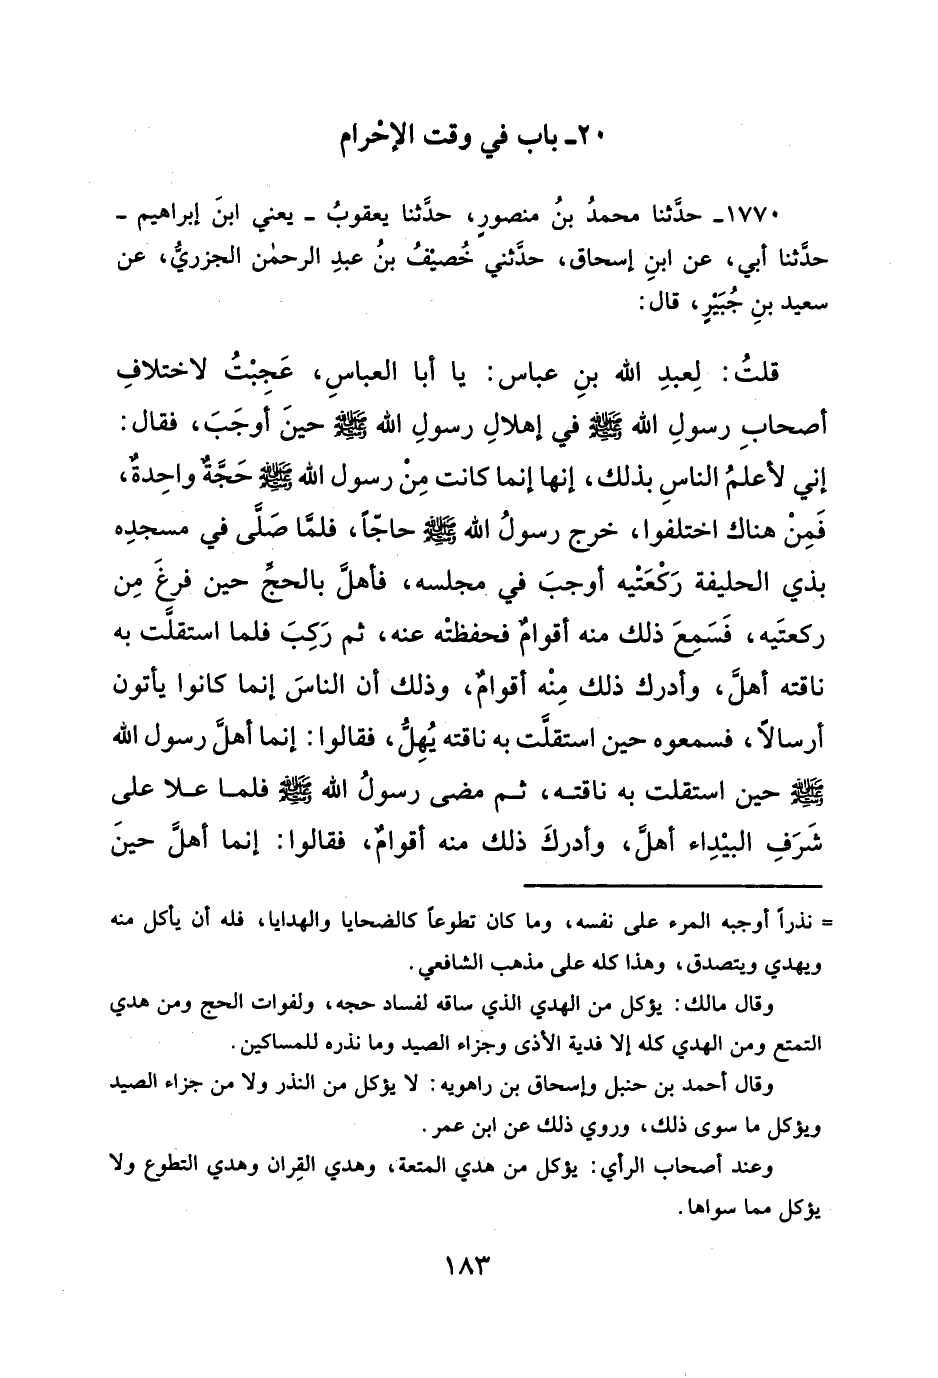 ٢٠ـ باب في وقت الإحْرام
١٧٧٠ـ حدَّثنا محمدُ بنُ منصورٍ، حدَّثنا يعقوبُ ـ يعني ابنَ إبراهيم ـ
حدَّثنا أبي، عن ابنِ إسحاق، حدَّثني خُصيْفُ بنُ عبدِ الرحمٰن الجزريُّ، عن
سعيد بنِ جُبَيْرٍ، قال:
قلتُ: لِعبدِ الله بنِ عباس: يا أبا العباسِ، عَجِبْتُ لاختلافِ
أصحابِ رسولِ الله ﷺ في إهلالِ رسولِ الله ﷺ حينَ أوجَبَ، فقال:
إني لأعلمُ الناسِ بذلك، إنها إنما كانت مِنْ رسول الله ﷺ حَجَّةٌ واحِدةٌ،
فَمِنْ هناك اختلفوا، خرج رسولُ الله ﷺ حاجّاً، فلمَّا صَلَّى في مسجدِه
بذي الحليفة رَكْعَتْيه أوجبَ في مجلسه، فأهلَّ بالحجِّ حين فرغَ مِن
ركعتَيه، فَسَمِعَ ذلك منه أقوامٌ فحفظتْه عنه، ثم رَكِبَ فلما استقلَّت به
ناقته أهلَّ، وأدرك ذلك مِنْه أقوامٌ، وذلك أن الناسَ إنما كانوا يأتون
أرسالاً، فسمعوه حين استقلَّت به ناقته يُهِلُّ، فقالوا: إنما أهلَّ رسول الله
ﷺ حين استقلت به ناقته، ثم مضى رسولُ الله ﷺ فلما علا على
شَرَفِ البيْداء أهلَّ، وأدركَ ذلك منه أقوامٌ، فقالوا: إنما أهلَّ حينَ
= نذراً أوجبه المرء على نفسه، وما كان تطوعاً كالضحايا والهدايا، فله أن يأكل منه
ويهدي ويتصدق، وهذا كله على مذهب الشافعي.
وقال مالك: يؤكل من الهدي الذي ساقه لفساد حجه، ولفوات الحج ومن هدي
التمتع ومن الهدي كله إلا فدية الأذى وجزاء الصيد وما نذره للمساكين.
وقال أحمد بن حنبل وإسحاق بن راهويه: لا يؤكل من النذر ولا من جزاء الصيد
ويؤكل ما سوى ذلك، وروي ذلك عن ابن عمر.
وعند أصحاب الرأي: يؤكل من هدي المتعة، وهدي القِران وهدي التطوع ولا
يؤكل مما سواها.
١٨٣